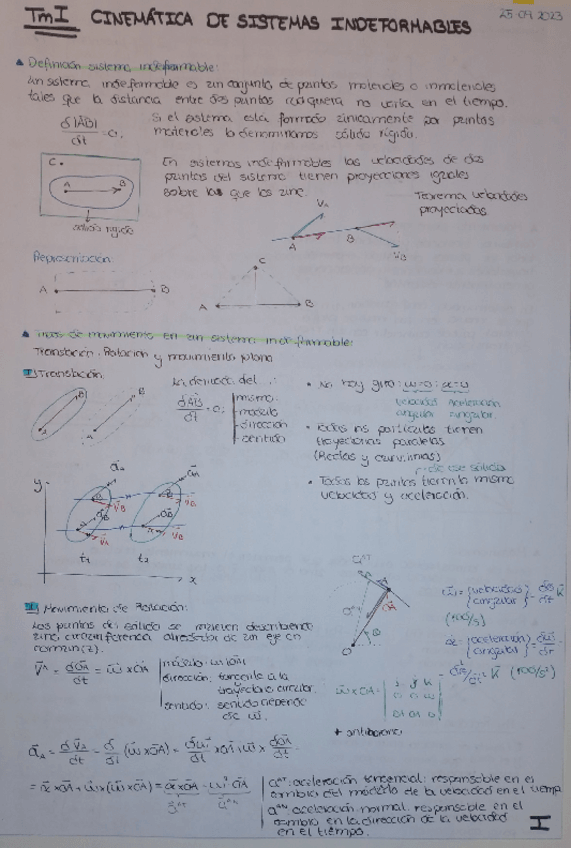 Tm I CINEMÁTICA DE SISTEMAS INDEFORMABLES
25 09 2023
▲ Definición sistema indeformable:
Un sistema indeformable es un conjunto de puntos materiales o inmateriales
tales que la distancia entre dos puntos cualquiera no varía en el tiempo.
d|AB|/dt = 0. Si el sistema esta formado únicamente por puntos
materiales lo denominamos sólido rígido.
C.
A B
sólido rígido
En sistemas indeformables las velocidades de dos
puntos del sistema tienen proyecciones iguales
sobre la que los une.
Teorema velocidades
proyectadas
VA
A B
VB
Representación:
A B
C
A B
▲ Tipos de movimiento en un sistema indeformable:
Translación, Rotación y movimiento plano
I) Translación:
A B
A B
La derivada del
dAB/dt = 0
mismo
módulo
dirección
sentido
• No hay giro: ω=0; α=0
velocidad aceleración
angular angular
• Todas las partículas tienen
trayectorias paralelas
(Rectas y curvilíneas)
de ese sólido
• Todos los puntos tienen la misma
velocidad y aceleración.
y
t₁ t₂
x
II) Movimiento de Rotación:
Los puntos del sólido se mueven describiendo
una circunferencia alrededor de un eje en
común (z).
V̄A = dOA/dt = ω̄ x OA
módulo: ω|OA|
dirección: tangente a la
trayectoria circular.
sentido: sentido depende
de ω̄.
O
θ
ω̄ = {velocidad angular} = dθ/dt k̄
(rad/s)
α = {aceleración angular} = dω̄/dt
k̄ (rad/s²)
ω̄ x OA =
+ antihorario
āA = dV̄A/dt = d/dt (ω̄ x OA) = dω̄/dt x OA + ω̄ x dOA/dt
= ᾱ x OA + ω̄ x (ω̄ x OA) = ᾱ x OA - ω² OA
aAT: aceleración tangencial: responsable en el
cambio del módulo de la velocidad en el tiempo
aAN aceleración normal: responsable en el
cambio en la dirección de la velocidad
en el tiempo.
I